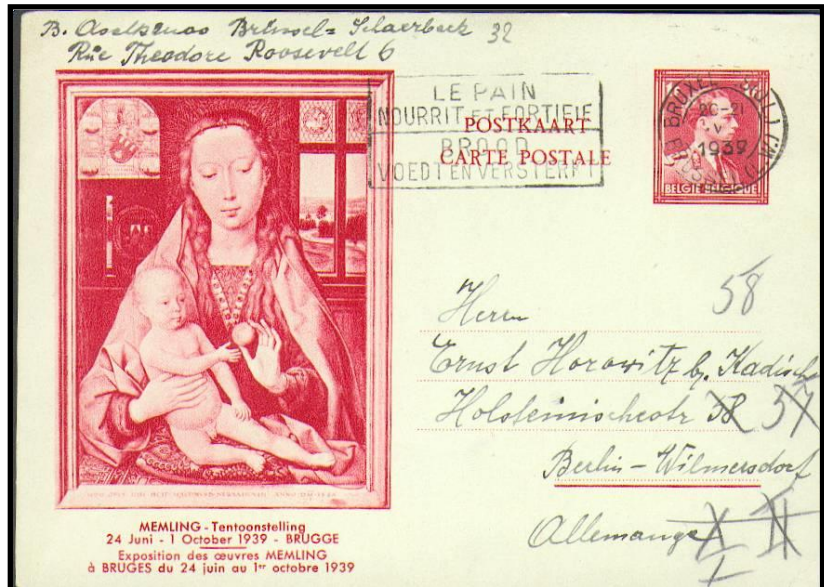 B. Brüssel = Schaerbeek 32
Rue Theodore Roosevelt 6
LE PAIN
NOURRIT ET FORTIFIE
BROOD
VOEDT EN VERSTERKT
POSTKAART
CARTE POSTALE
1939
BELGIE-BELGIQUE
58
Herrn
Ernst Horowitz b. Kadisch
Holsteinischestr 38 57
Berlin-Wilmersdorf
Allemange
MEMLING - Tentoonstelling
24 Juni - 1 October 1939 - BRUGGE
Exposition des œuvres MEMLING
à BRUGES du 24 juin au 1er octobre 1939